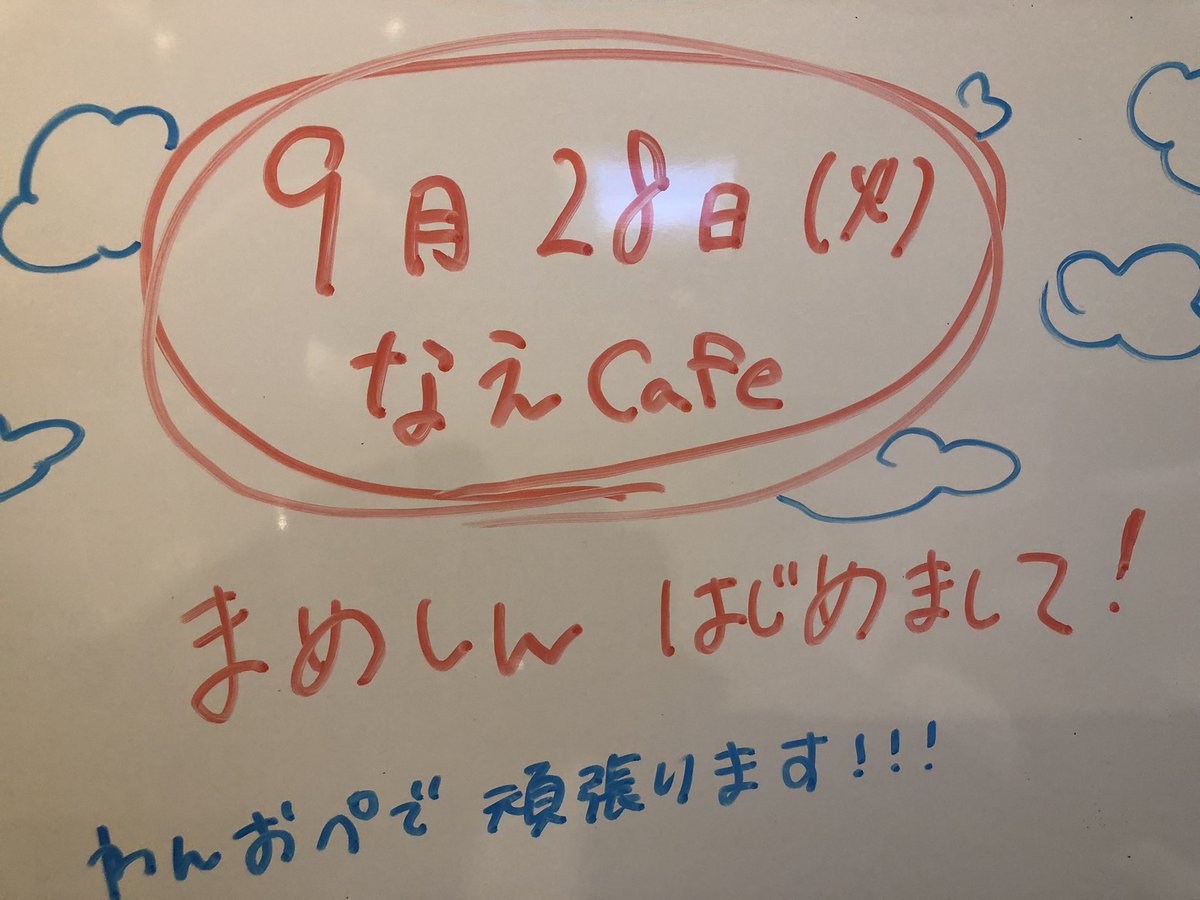 9月28日(火)
なえCafe
まめしん はじめまして!
わんおぺで 頑張ります!!!